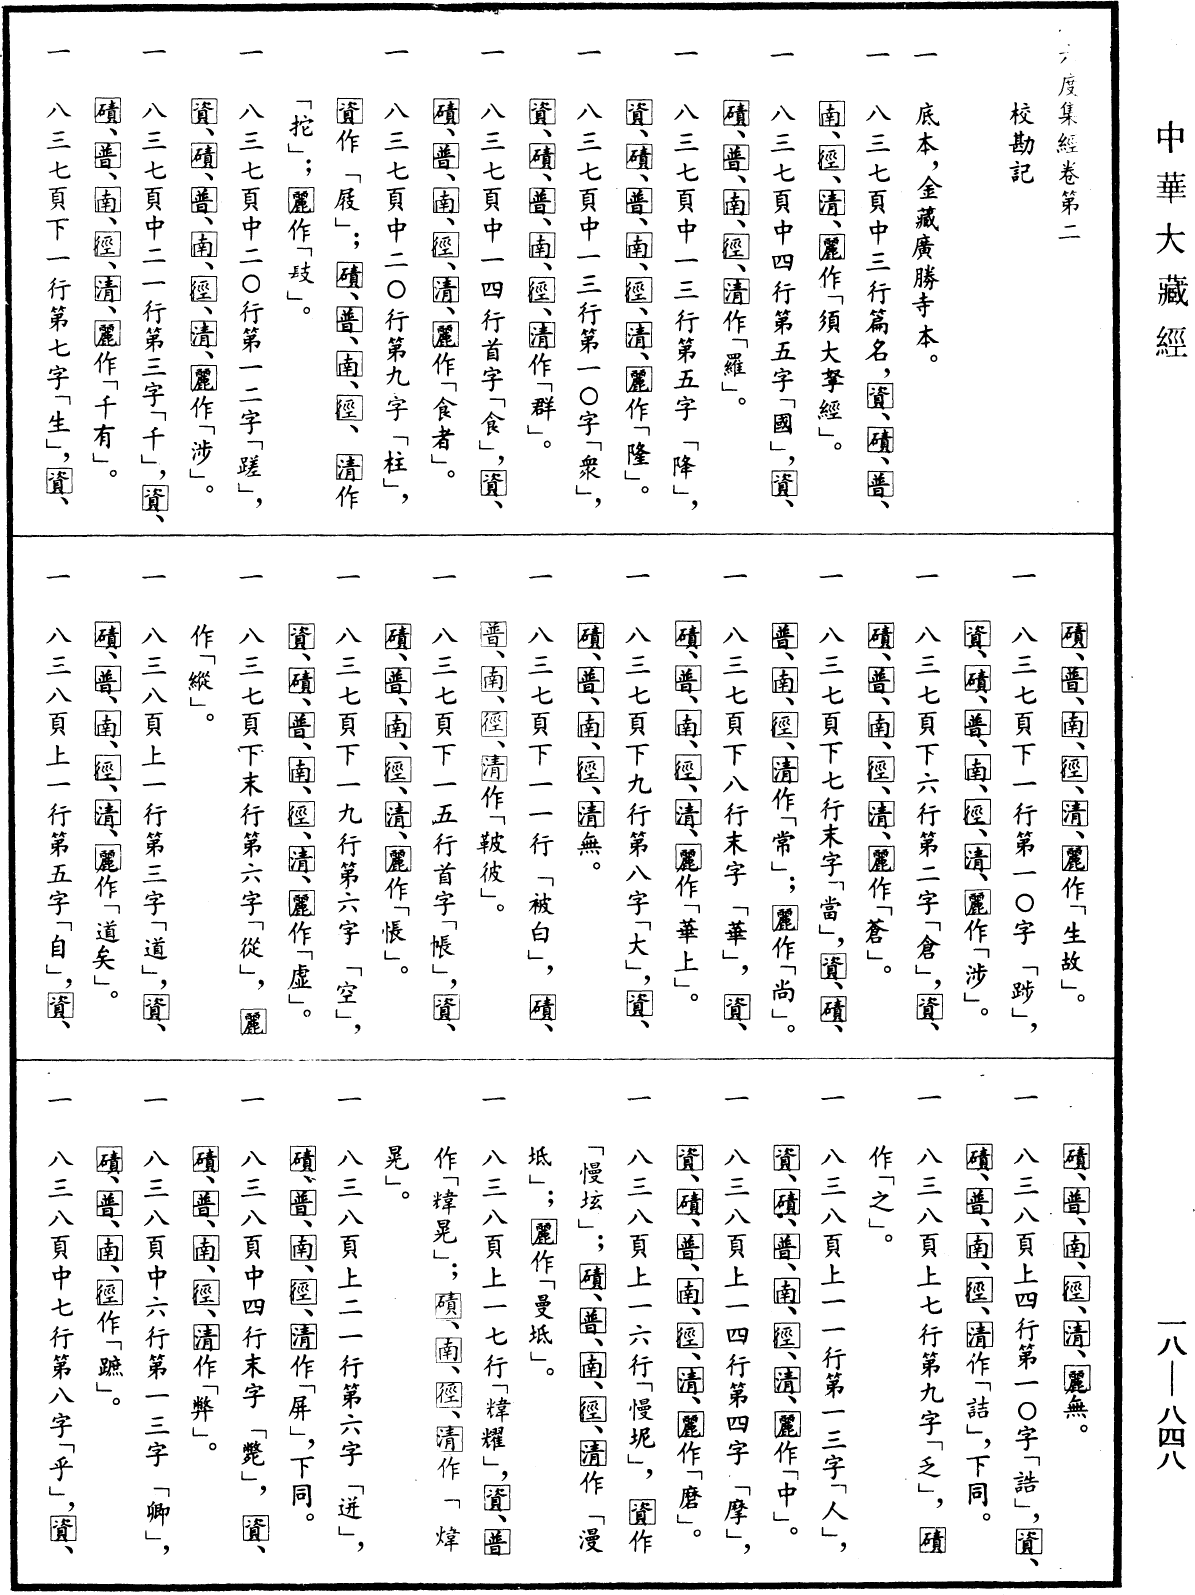 中華大藏經
六度集經卷第二
校勘記
一 底本，金藏廣勝寺本。
一 八三七頁中三行篇名，資、磧、普、
南、徑、清、麗作「須大拏經」。
一 八三七頁中四行第五字「國」，資、
磧、普、南、徑、清作「羅」。
一 八三七頁中一三行第五字「降」，
資、磧、普、南、徑、清、麗作「隆」。
一 八三七頁中一三行第一〇字「衆」，
資、磧、普、南、徑、清作「群」。
一 八三七頁中一四行首字「食」，資、
磧、普、南、徑、清、麗作「食者」。
一 八三七頁中二〇行第九字「柱」，
資作「屐」；磧、普、南、徑、清作
「拕」；麗作「攱」。
一 八三七頁中二〇行第一二字「蹉」，
資、磧、普、南、徑、清、麗作「涉」。
一 八三七頁中二一行第三字「千」，資、
磧、普、南、徑、清、麗作「千有」。
一 八三七頁下一行第七字「生」，資、
磧、普、南、徑、清、麗作「生故」。
一 八三七頁下一行第一〇字「跡」，
資、磧、普、南、徑、清、麗作「涉」。
一 八三七頁下六行第二字「倉」，資、
磧、普、南、徑、清、麗作「蒼」。
一 八三七頁下七行末字「當」，資、磧、
普、南、徑、清作「常」；麗作「尚」。
一 八三七頁下八行末字「華」，資、
磧、普、南、徑、清、麗作「華上」。
一 八三七頁下九行第八字「大」，資、
磧、普、南、徑、清無。
一 八三七頁下一一行「被白」，磧、
普、南、徑、清作「鞁彼」。
一 八三七頁下一五行首字「帳」，資、
磧、普、南、徑、清、麗作「悵」。
一 八三七頁下一九行第六字「空」，
資、磧、普、南、徑、清、麗作「虛」。
一 八三七頁下末行第六字「從」，麗
作「縱」。
一 八三八頁上一行第三字「道」，資、
磧、普、南、徑、清、麗作「道矣」。
一 八三八頁上一行第五字「自」，資、
磧、普、南、徑、清、麗無。
一 八三八頁上四行第一〇字「誥」，資、
磧、普、南、徑、清作「詰」，下同。
一 八三八頁上七行第九字「乏」，磧
作「之」。
一 八三八頁上一一行第一三字「人」，
資、磧、普、南、徑、清、麗作「中」。
一 八三八頁上一四行第四字「摩」，
資、磧、普、南、徑、清、麗作「磨」。
一 八三八頁上一六行「慢坭」，資作
「慢坛」；磧、普、南、徑、清作「漫
坻」；麗作「曼坻」。
一 八三八頁上一七行「煒耀」，資、普
作「煒晃」；磧、南、徑、清作「煒
晃」。
一 八三八頁上二一行第六字「迸」，
磧、普、南、徑、清作「屏」，下同。
一 八三八頁中四行末字「斃」，資、
磧、普、南、徑、清作「弊」。
一 八三八頁中六行第一三字「卿」，
磧、普、南、徑作「蹠」。
一 八三八頁中七行第八字「乎」，資、
一八—八四八